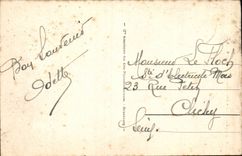 Bon Souvenir
Odette
Monsieur Le Floch
Sté d'Electricité Mors
23, Rue Petit
Clichy
Seine